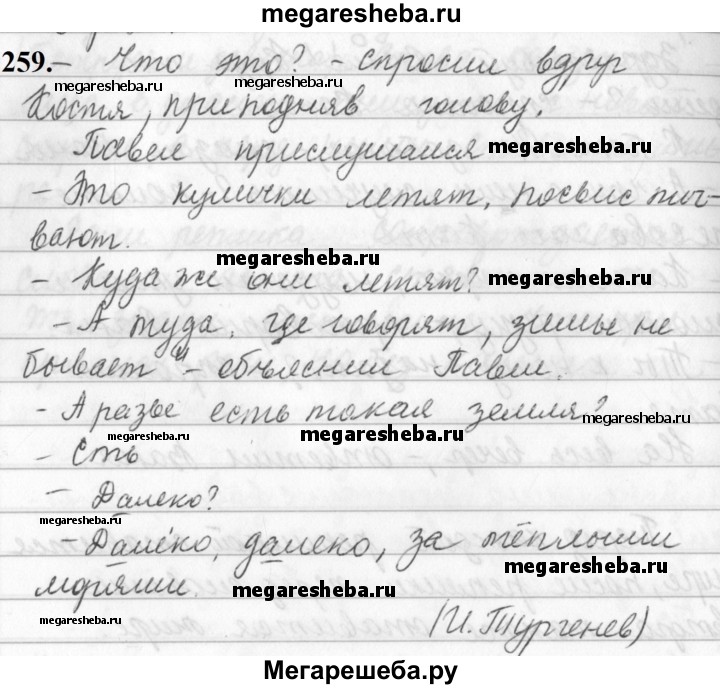 megaresheba.ru
259. – Что это? – спросил вдруг
megaresheba.ru megaresheba.ru
Костя, приподняв голову.
Павел прислушался megaresheba.ru
– Это кулички летят, посвисты-
вают. megaresheba.ru
– Куда же они летят? megaresheba.ru
– А туда, где говорят, зимы не
бывает" – объяснил Павел.
– А разве есть такая земля?
megaresheba.ru megaresheba.ru megaresheba.ru
– Есть
– Далеко?
megaresheba.ru
– Далеко, далеко, за тёплыми
megaresheba.ru
морями. megaresheba.ru
megaresheba.ru
(И. Тургенев)
Мегарешеба.ру